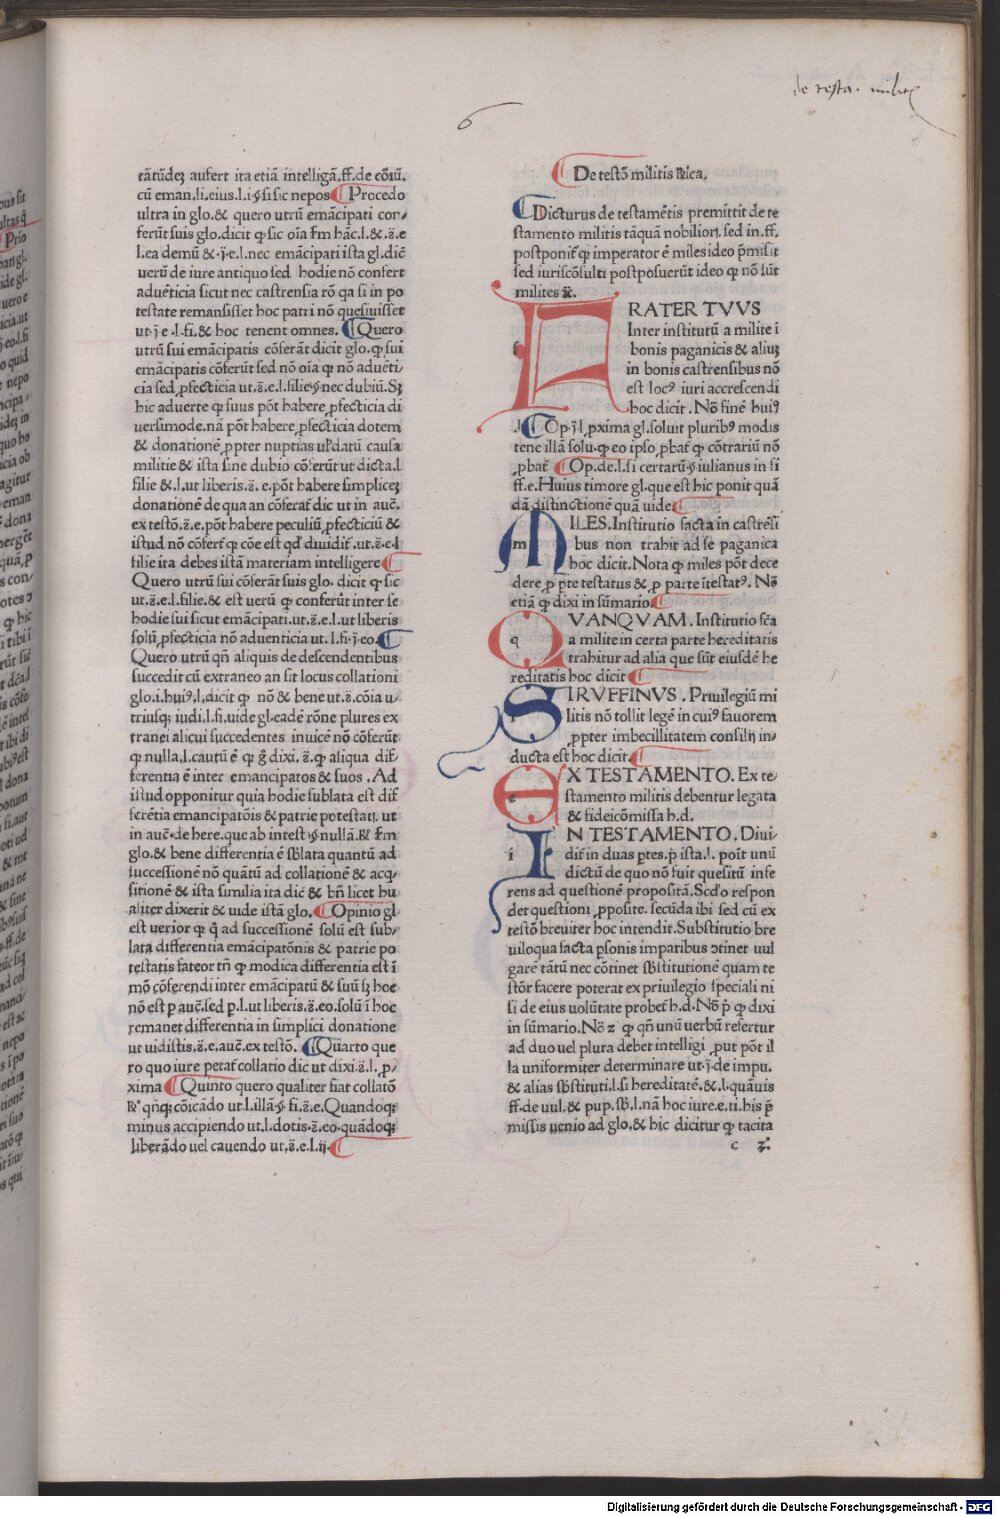 de testa. milit
6
tātūdeȝ aufert ita etiā intelligā.ff.de cōiū.
cū eman.li.eius.l.i.§ si sic nepos Procedo
ultra in glo.& quero utrū emācipati con/
ferūt suis glo.dicit ꝙ sic oīa ẜm hāc.l.& .s̄.e
l.ea demū & .j.e.l.nec emācipati ista gl.dic̄
uerū de iure antiquo sed hodie nō confert
aduēticia sicut nec castrensia rō qa si in po
testate remansisset hoc patri nō quesiuisset
ut.j.e.l.fi.& hoc tenent omnes. Quero
utrū sui emācipatis cōferāt dicit glo.ꝙ sui
emācipatis cōferūt sed nō oīa ꝙ nō aduēti/
cia sed ꝓfecticia ut.s̄.e.l.filie§ nec dubiū.Sȝ
hic aduerte ꝙ suus pōt habere ꝓfecticia di
uersimode.nā pōt habere ꝓfecticia dotem
& donationē ꝓpter nuptias ul̓ datū causa
militie & ista sine dubio cōferūt ut dicta.l
filie & .l.ut liberis.s̄. e.pōt habere simpliceȝ
donationē de qua an cōferat̄ dic ut in auc̄.
ex testō.s̄.e.pōt habere peculiū ꝓfecticiū &
istud nō cōfert̄ ꝙ cōe est qd̓ diuidit̄.ut.s̄.e.l
filie ita debes istā materiam intelligere
Quero utrū sui cōferāt suis glo. dicit ꝙ sic
ut.s̄.e.l.filie.& est uerū ꝙ conferūt inter se
hodie sui sicut emācipati.ut.s̄.e.l.ut liberis
solū ꝓfecticia nō aduenticia ut.l.fi.j.eo.
Quero utrū qn̄ aliquis de descendentibus
succedit cū extraneo an sit locus collationi
glo.i.huiꝰ.l.dicit ꝙ nō & bene ut.s̄.cōia u/
triusqȝ iudi.l.fi.uide gl.eadē rōne plures ex
tranei alicui succedentes inuicē nō cōferūt
ꝙ nulla.l.cautū ē ꝙ g̓ dixi.s̄.ꝙ aliqua dif/
ferentia ē inter emancipatos & suos . Ad
istud opponitur quia hodie sublata est dif
ferētia emancipatōis & patrie potestati.ut
in auc̄.de here.que ab intest.§ nullā.R̄ ẜm
glo.& bene differentia ē sb̓lata quantū ad
successionē nō quātū ad collationē & acq̓/
sitionē & ista similia ita dic̄ & bn̄ licet bu
aliter dixerit & uide istā glo. Opinio gl
est uerior ꝙ q̓ ad successionē solū est sub/
lata differentia emācipatōnis & patrie po
testatis fateor tn̄ ꝙ modica differentia est ī
mō cōferendi inter emācipatū & suū sȝ hoc
nō est ꝑ auc̄.sed ꝑ.l.ut liberis.s̄.eo.solū ī hoc
remanet differentia in simplici donatione
ut uidistis.s̄.e.auc̄.ex testō. Quarto que
ro quo iure petat̄ collatio dic ut dixi.s̄.l. ꝓ/
xima Quinto quero qualiter fiat collatō
R̄ꝰ qn̄qȝ cōicādo ut.l.illā§ fi.s̄.e.Quandoqȝ
minus accipiendo ut.l.dotis.s̄.eo.quādoqȝ
liberādo uel cauendo ut.s̄.e.l.ij.
De testō militis R̄ica.
Dicturus de testamētis premittit de te
stamento militis tāquā nobiliori.sed in.ff.
postponit̄ ꝙ imperator ē miles ideo p̄misit
sed iuriscōsulti postposuerūt ideo ꝙ nō sūt
milites &c̄.
FRATER TVVS
Inter institutū a milite ī
bonis paganicis & aliuȝ
in bonis castrensibus nō
est locꝰ iuri accrescendi
hoc dicit . Nō finē huiꝰ
.l. Op.j.l.ꝓxima gl.soluit pluribꝰ modis
tene illā solu.ꝙ eo ipso ꝓbat̄ ꝙ cōtrariū nō
ꝓbat̄ Op.de.l.si certarū§ iulianus in fi
ff.e.Huius timore gl.que est hic ponit quā
dā distinctionē quā uide
MILES.Institutio facta in castrēsi
bus non trahit ad se paganica
hoc dicit.Nota ꝙ miles pōt dece
dere ꝓ ꝑte testatus & ꝓ parte ītestatꝰ. Nō
etiā ꝙ dixi in sūmario
QVANQVAM . Institutio fc̄a
a milite in certa parte hereditatis
trahitur ad alia que sūt eiusdē he
reditatis hoc dicit
SI RVFFINVS . Priuilegiū mi
litis nō tollit legē in cuiꝰ fauorem
ꝓpter imbecillitatem consilij in/
ducta est hoc dicit.
EX TESTAMENTO. Ex te/
stamento militis debentur legata
& fideicōmissa h.d.
IN TESTAMENTO. Diui/
dit̄ in duas ꝑtes.p̄ ista.l. poīt unū
dictū de quo nō fuit quesitū infe
rens ad questionē propositā.Scd̓o respon
det questioni ꝓposite. secūda ibi sed cū ex
testō breuiter hoc intendit.Substitutio bre
uiloqua facta ꝑsonis imparibus ↄtinet uul
garē tātū nec cōtinet sb̓stitutionē quam te
stōr facere poterat ex priuilegio speciali ni
si de eius uolūtate probet̄ h.d. Nō p̄ ꝙ dixi
in sūmario.Nō 2 ꝙ qn̄ unū uerbū refertur
ad duo uel plura debet intelligi ꝓut pōt il
la uniformiter determinare ut.j.de impu.
& alias sb̓stituti.l.si hereditatē.& .l.quāuis
ff.de uul.& pup.sb̓.l.nā hoc iure.e.ti.his p̄
missis uenio ad glo.& hic dicitur ꝙ tacita
c 2°
Digitalisierung gefördert durch die Deutsche Forschungsgemeinschaft - DFG